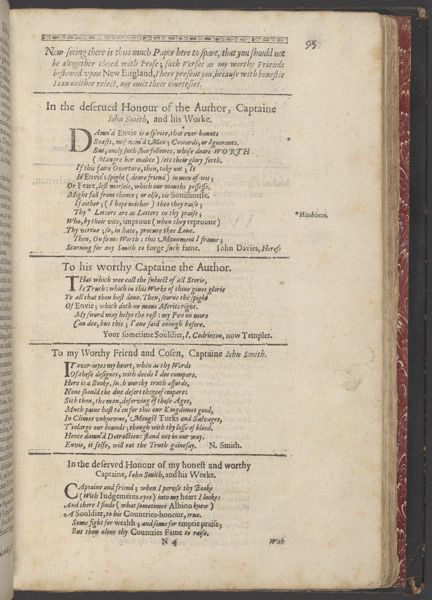 95
Now seeing there is thus much Paper here to spare, that you should not
be altogether cloyed with Prose; such Verses as my worthy Friends
bestowed upon New England, I here present you, because with honestie
I can neither reiect, nor omit their courtesies.
In the deserued Honour of the Author, Captaine
Iohn Smith, and his Worke.
DAmn'd Envie is a sp'rite, that ever haunts
Beasts, mis-nam'd Men; Cowards, or Ignorants.
But, onely such shee followes, whose deare WORTH
(Maugre her malice) sets their glory forth.
If this faire Overture, then, take not; It
Is Envie's spight (deare friend) in men of-wit;
Or Feare, lest morsels, which our mouths possesse,
Might fall from thence; or else, tis Sottishnesse.
If either; (I hope neither) thee they raise;
Thy * Letters are as Letters in thy praise;
Who, by their vice, improve (when they reproove)
Thy vertue; so, in hate, procure thee Loue.
Then, On firm Worth: this Monument I frame;
Scorning for any Smith to forge such fame. John Davies, Heref:
*Hinderers.
To his worthy Captaine the Author.
THat which wee call the subiect of all Storie,
Is Truth: which in this Worke of thine giues glorie
To all that thou hast done. Then, scorne the spight
Of Envie; which doth no mans Merits right.
My sword may helpe the rest: my Pen no more
Can doe, but this; I'aue said enough before.
Your sometime Souldier, I. Codrinton, now Templer.
To my Worthy Friend and Cosen, Captaine Iohn Smith.
IT over-ioyes my heart, when as thy Words
Of these designes, with deeds I doe compare.
Here is a Booke, such worthy truth affords,
None should the due desert thereof impare:
Sith thou, the man, deserving of these Ages,
Much paine hast ta'en for this our Kingdomes good,
In Climes unknowne, 'Mongst Turks and Salvages,
T'inlarge our bounds; though with thy losse of blood.
Hence damn'd Detraction: stand not in our way.
Envie, it selfe, will not the Truth gainesay. N. Smith.
In the deserved Honour of my honest and worthy
Captaine, Iohn Smith, and his Worke.
CAptaine and friend; when I peruse thy Booke
(With Iudgements eyes) into my heart I looke:
And there I finde (what sometimes Albion knew)
A Souldier, to his Countries-honour, true.
Some fight for wealth; and some for emptie praise;
But thou alone thy Countries Fame to raise.
N 4 With